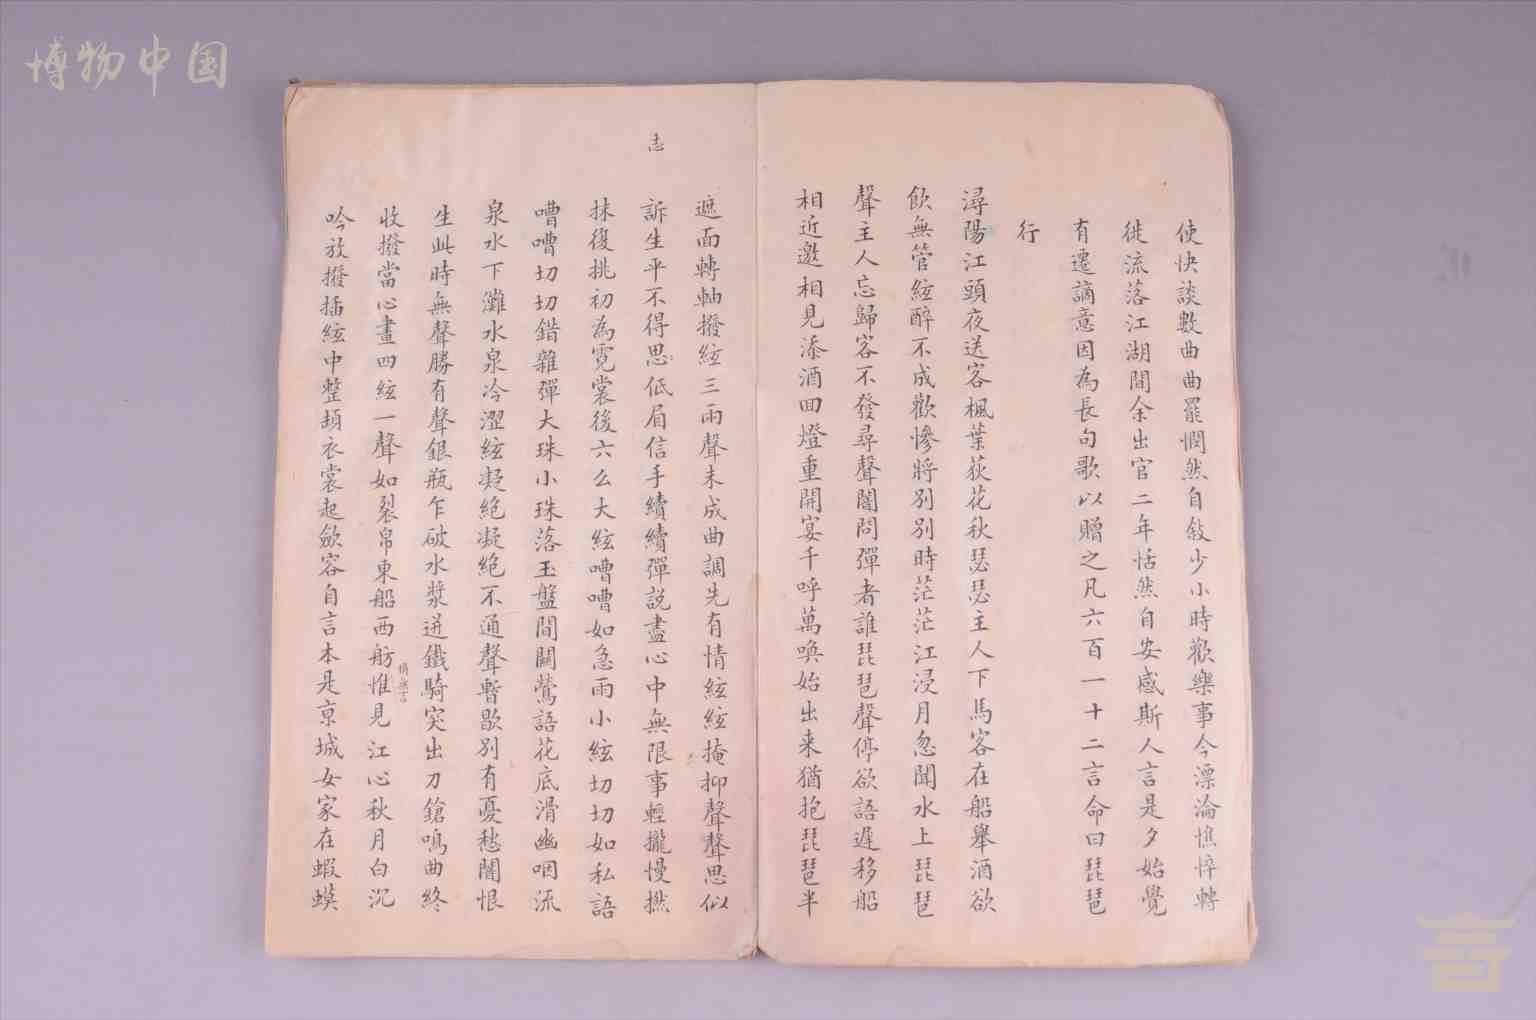 博物中国
使快談數曲曲罷憫然自敍少小時歡樂事今漂淪憔悴轉
徙流落江湖間余出官二年恬然自安感斯人言是夕始覺
有遷謫意因為長句歌以贈之凡六百一十二言命曰琵琶
行
潯陽江頭夜送客楓葉荻花秋瑟瑟主人下馬客在船舉酒欲
飲無管絃醉不成歡慘將別別時茫茫江浸月忽聞水上琵琶
聲主人忘歸客不發尋聲闇問彈者誰琵琶聲停欲語遲移船
相近邀相見添酒回燈重開宴千呼萬喚始出来猶抱琵琶半
遮面轉軸撥絃三兩聲未成曲調先有情絃絃掩抑聲聲思似
志
訴生平不得思低眉信手續續彈說盡心中無限事輕攏慢撚
抹復挑初為霓裳後六么大絃嘈嘈如急雨小絃切切如私語
嘈嘈切切錯雜彈大珠小珠落玉盤間關鶯語花底滑幽咽流
泉水下灘水泉冷澀絃凝絶凝絶不通聲暫歇別有憂愁闇恨
生此時無聲勝有聲銀瓶乍破水漿迸鐵騎突出刀鎗鳴曲終
收撥當心畫四絃一聲如裂帛東船西舫惟見江心秋月白沉
悄無言
吟放撥插絃中整頓衣裳起斂容自言本是京城女家在蝦蟆